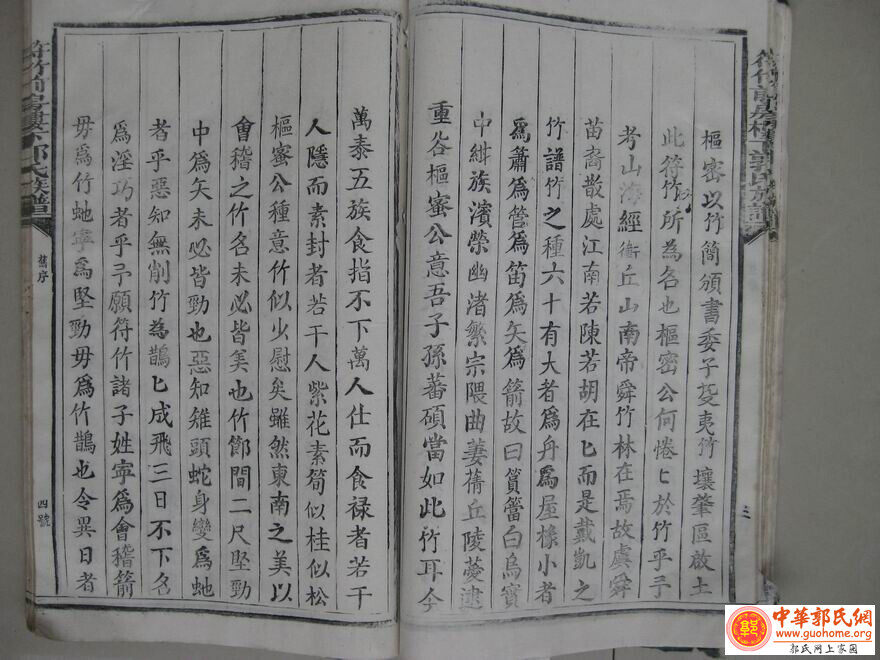 樞密以竹簡頒書委子芟夷竹壤肇區啟土
此符竹所為名也樞密公何惓匕於竹乎予
考山海經衛丘山南帝舜竹林在焉故虞舜
苗裔散處江南若陳若胡在匕而是戴凱之
竹譜竹之種六十有大者為舟為屋椽小者
爲簫爲管爲笛爲矢爲箭故曰篔簹白烏實
中紺族濱榮幽渚繁宗隈曲萋蒨丘陵薆逮
重谷樞蜜公意吾子孫蕃碩當如此竹耳今
三
萬泰五族食指不下萬人仕而食禄者若干
人隱而素封者若干人紫花素筍似桂似松
樞蜜公種意竹似少慰矣雖然東南之美以
會稽之竹名未必皆美也竹節間二尺堅勁
中爲矢未必皆勁也惡知雉頭蛇身變爲虵
者乎惡知無削竹為鵲匕成飛三日不下名
爲淫巧者乎予願符竹諸子姓寧爲會稽箭
毋爲竹虵寧爲堅勁毋爲竹鵲也令異日者
符竹前房樓下郭氏族譜
舊序
四號
中華郭氏網
www.guohome.org
郭氏網上家園